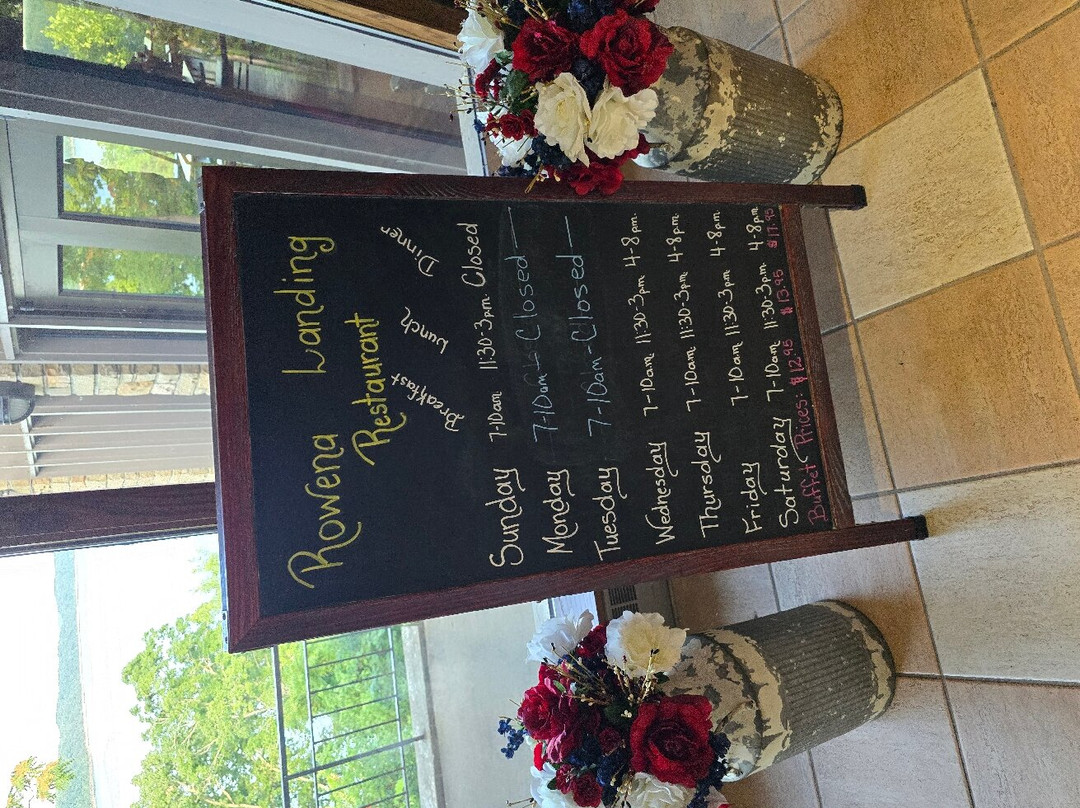 Rowena Landing
Restaurant
Breakfast Lunch Dinner
Sunday 7-10am 11:30-3pm Closed
Monday 7-10am - Closed —
Tuesday 7-10am - Closed —
Wednesday 7-10am 11:30-3pm 4-8pm.
Thursday 7-10am 11:30-3pm 4-8pm
Friday 7-10am 11:30-3pm 4-8pm
Saturday 7-10am 11:30-3pm 4-8pm
Buffet Prices: $12.95 $13.95 $17.95